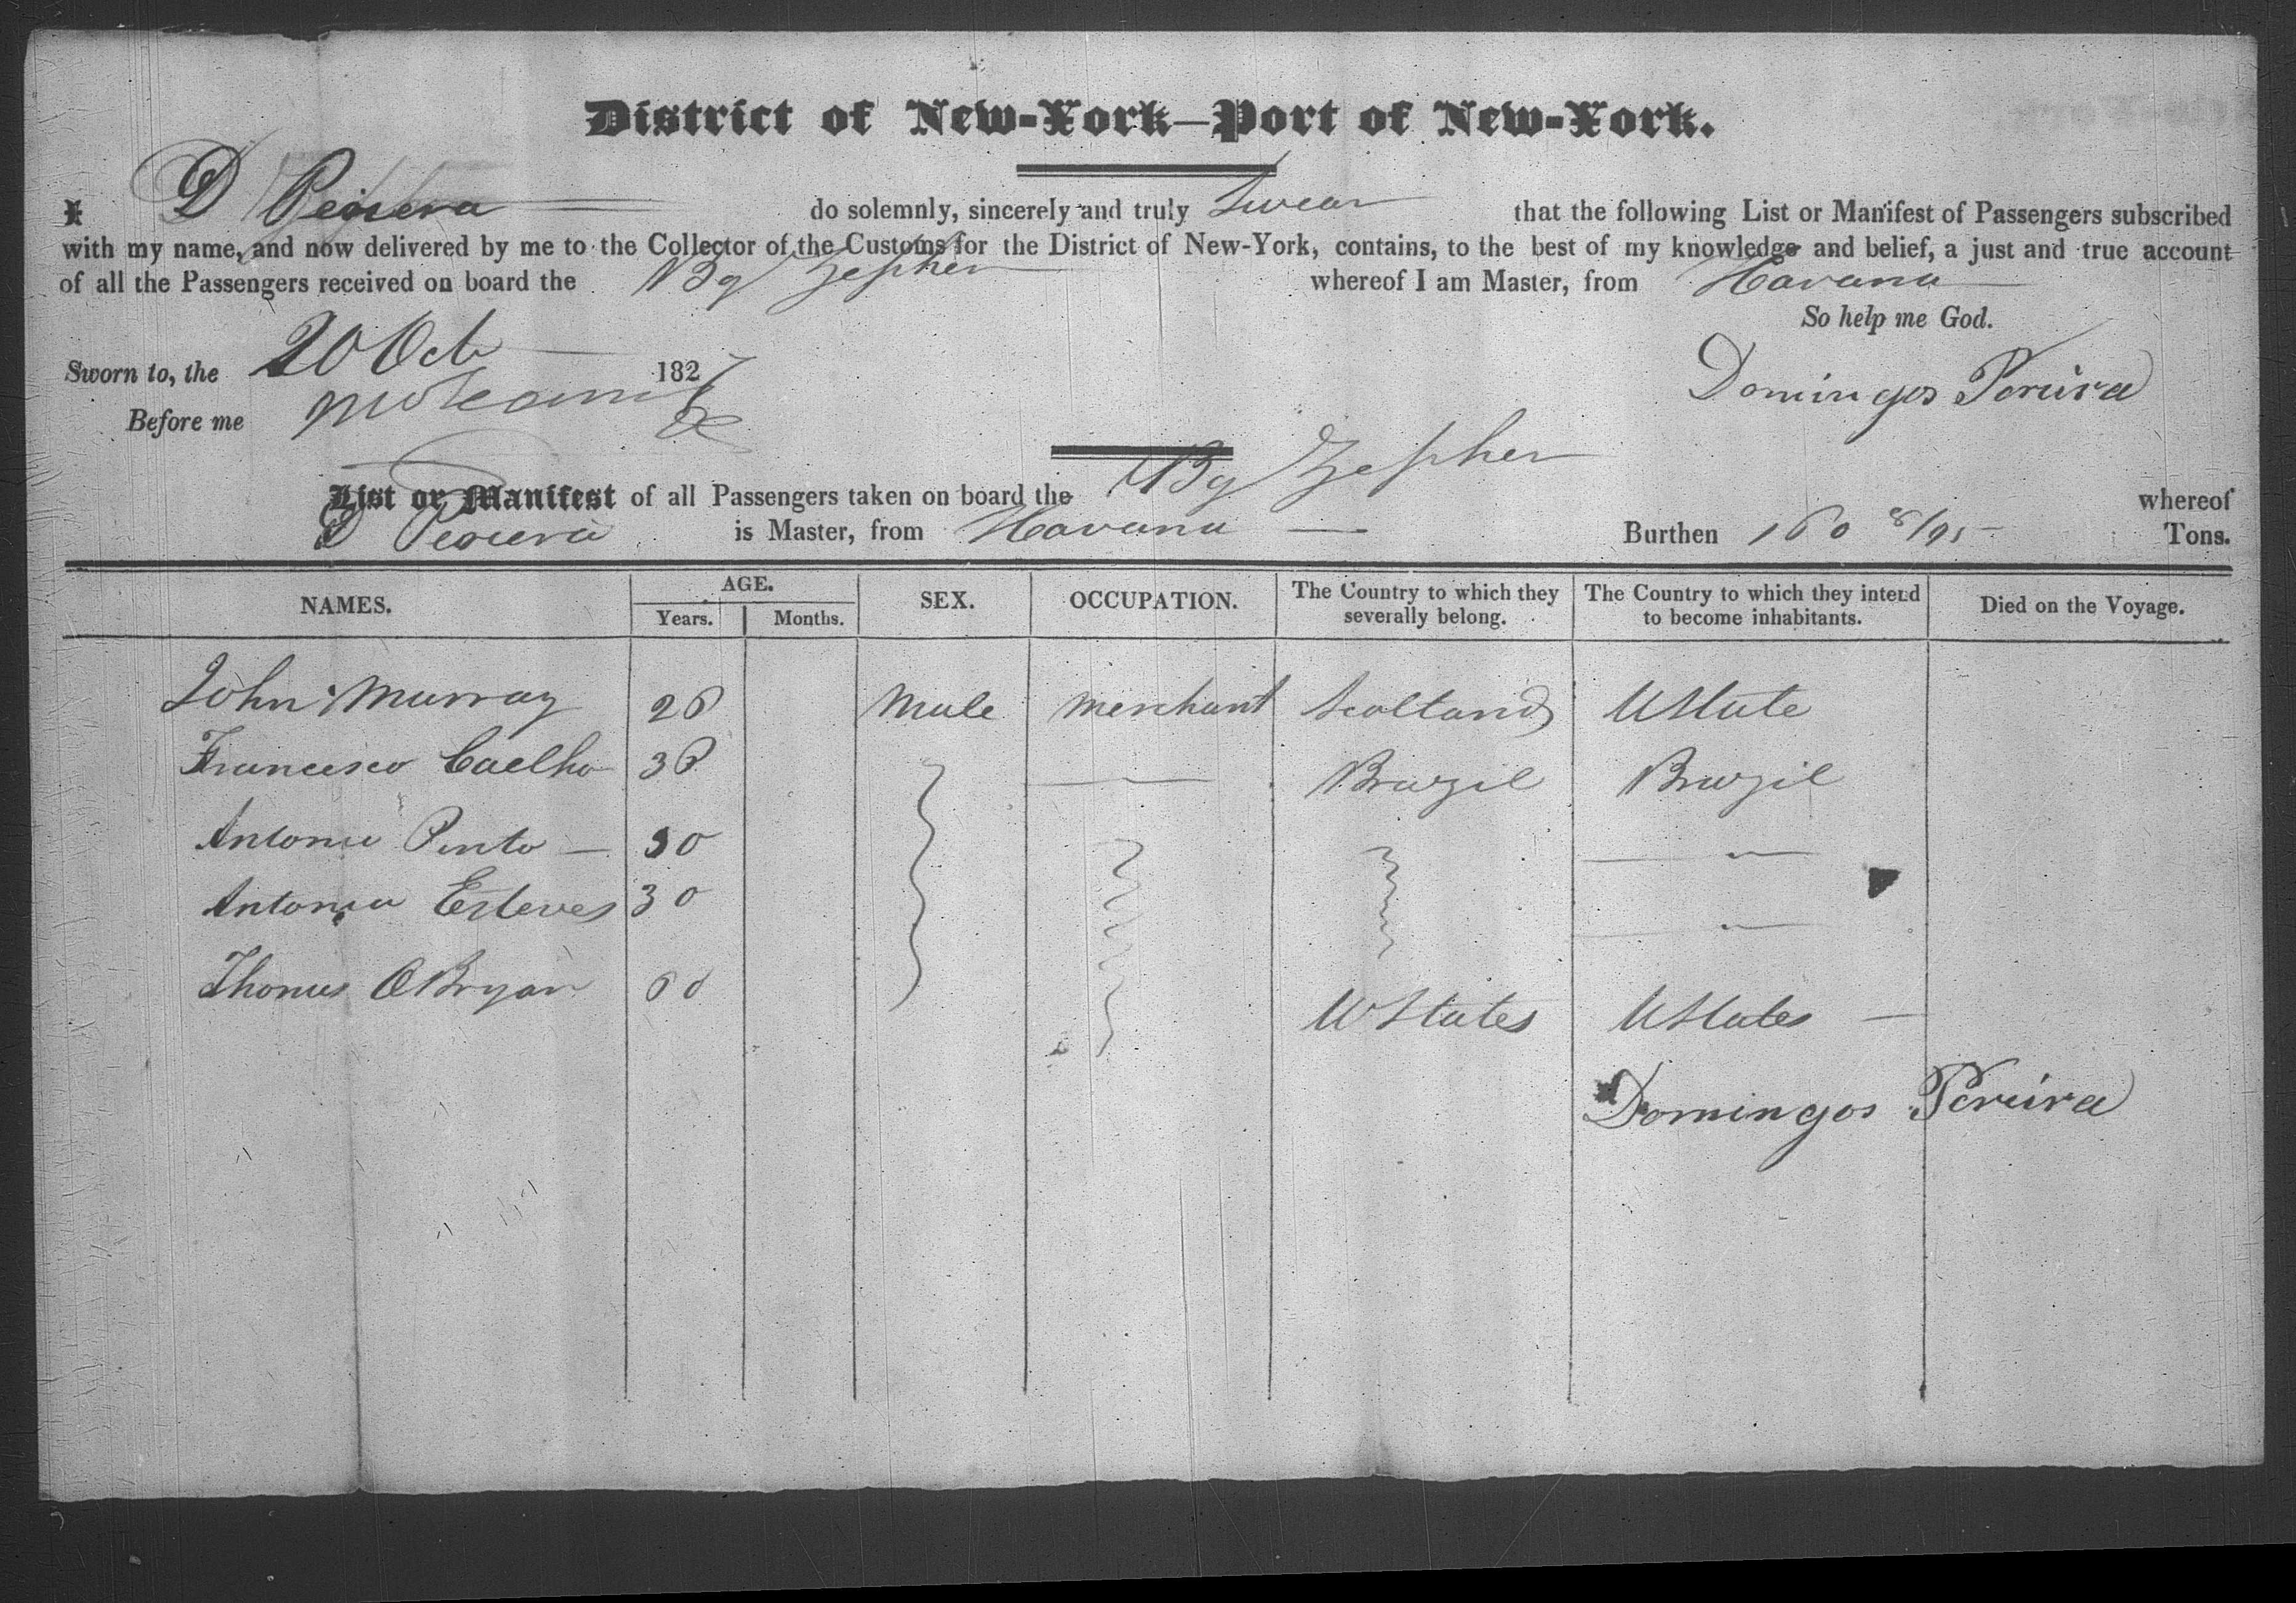 District of New-York—Port of New-York.
I D Pereira do solemnly, sincerely and truly Swear that the following List or Manifest of Passengers subscribed
with my name, and now delivered by me to the Collector of the Customs for the District of New-York, contains, to the best of my knowledge and belief, a just and true account
of all the Passengers received on board the Bg Zepher whereof I am Master, from Havana
So help me God.
Sworn to, the 20 Oct 1827
Domingos Pereira
Before me
List or Manifest of all Passengers taken on board the Bg Zepher whereof
D Pereira is Master, from Havana — Burthen 160 8/95 Tons.
NAMES. AGE. SEX. OCCUPATION. The Country to which they severally belong. The Country to which they intend to become inhabitants. Died on the Voyage.
Years. Months.
John Murray 26 Male Merchant Scotland UState
Francisco Coelho 36 — Brazil Brazil
Antonio Pinto — 30 — " —
Antonio Esteves 30 — " —
Thomas OBryan 60 UStates UStates —
Domingos Pereira